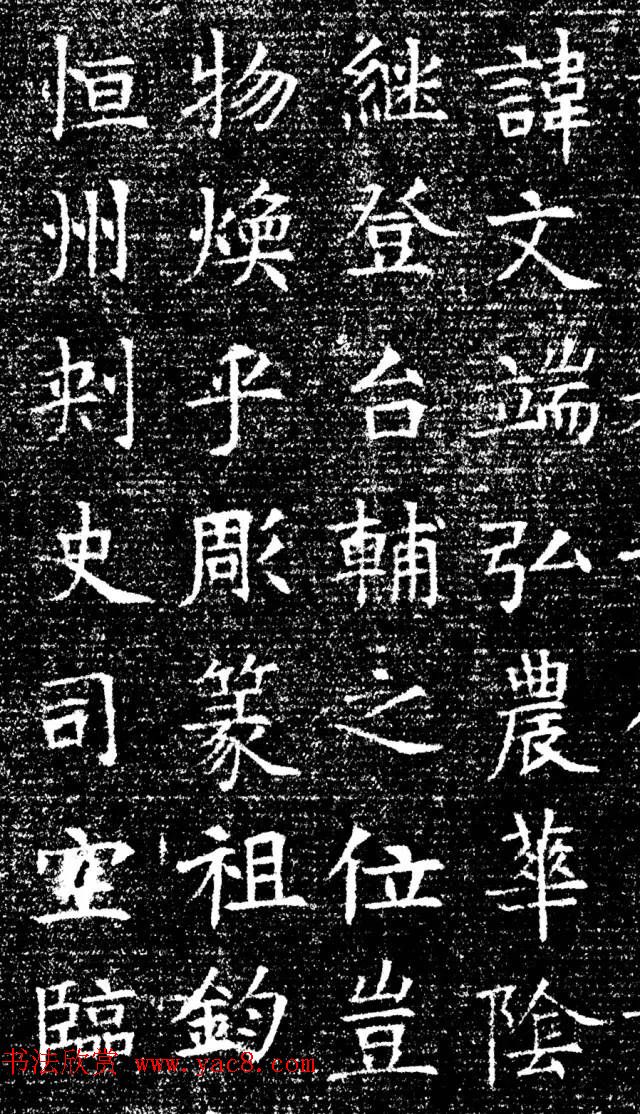 諱文端弘農華陰
継登台輔之位豈
物煥乎彫篆祖鈞
恒州刺史司空臨
书法欣赏 www.yac8.com